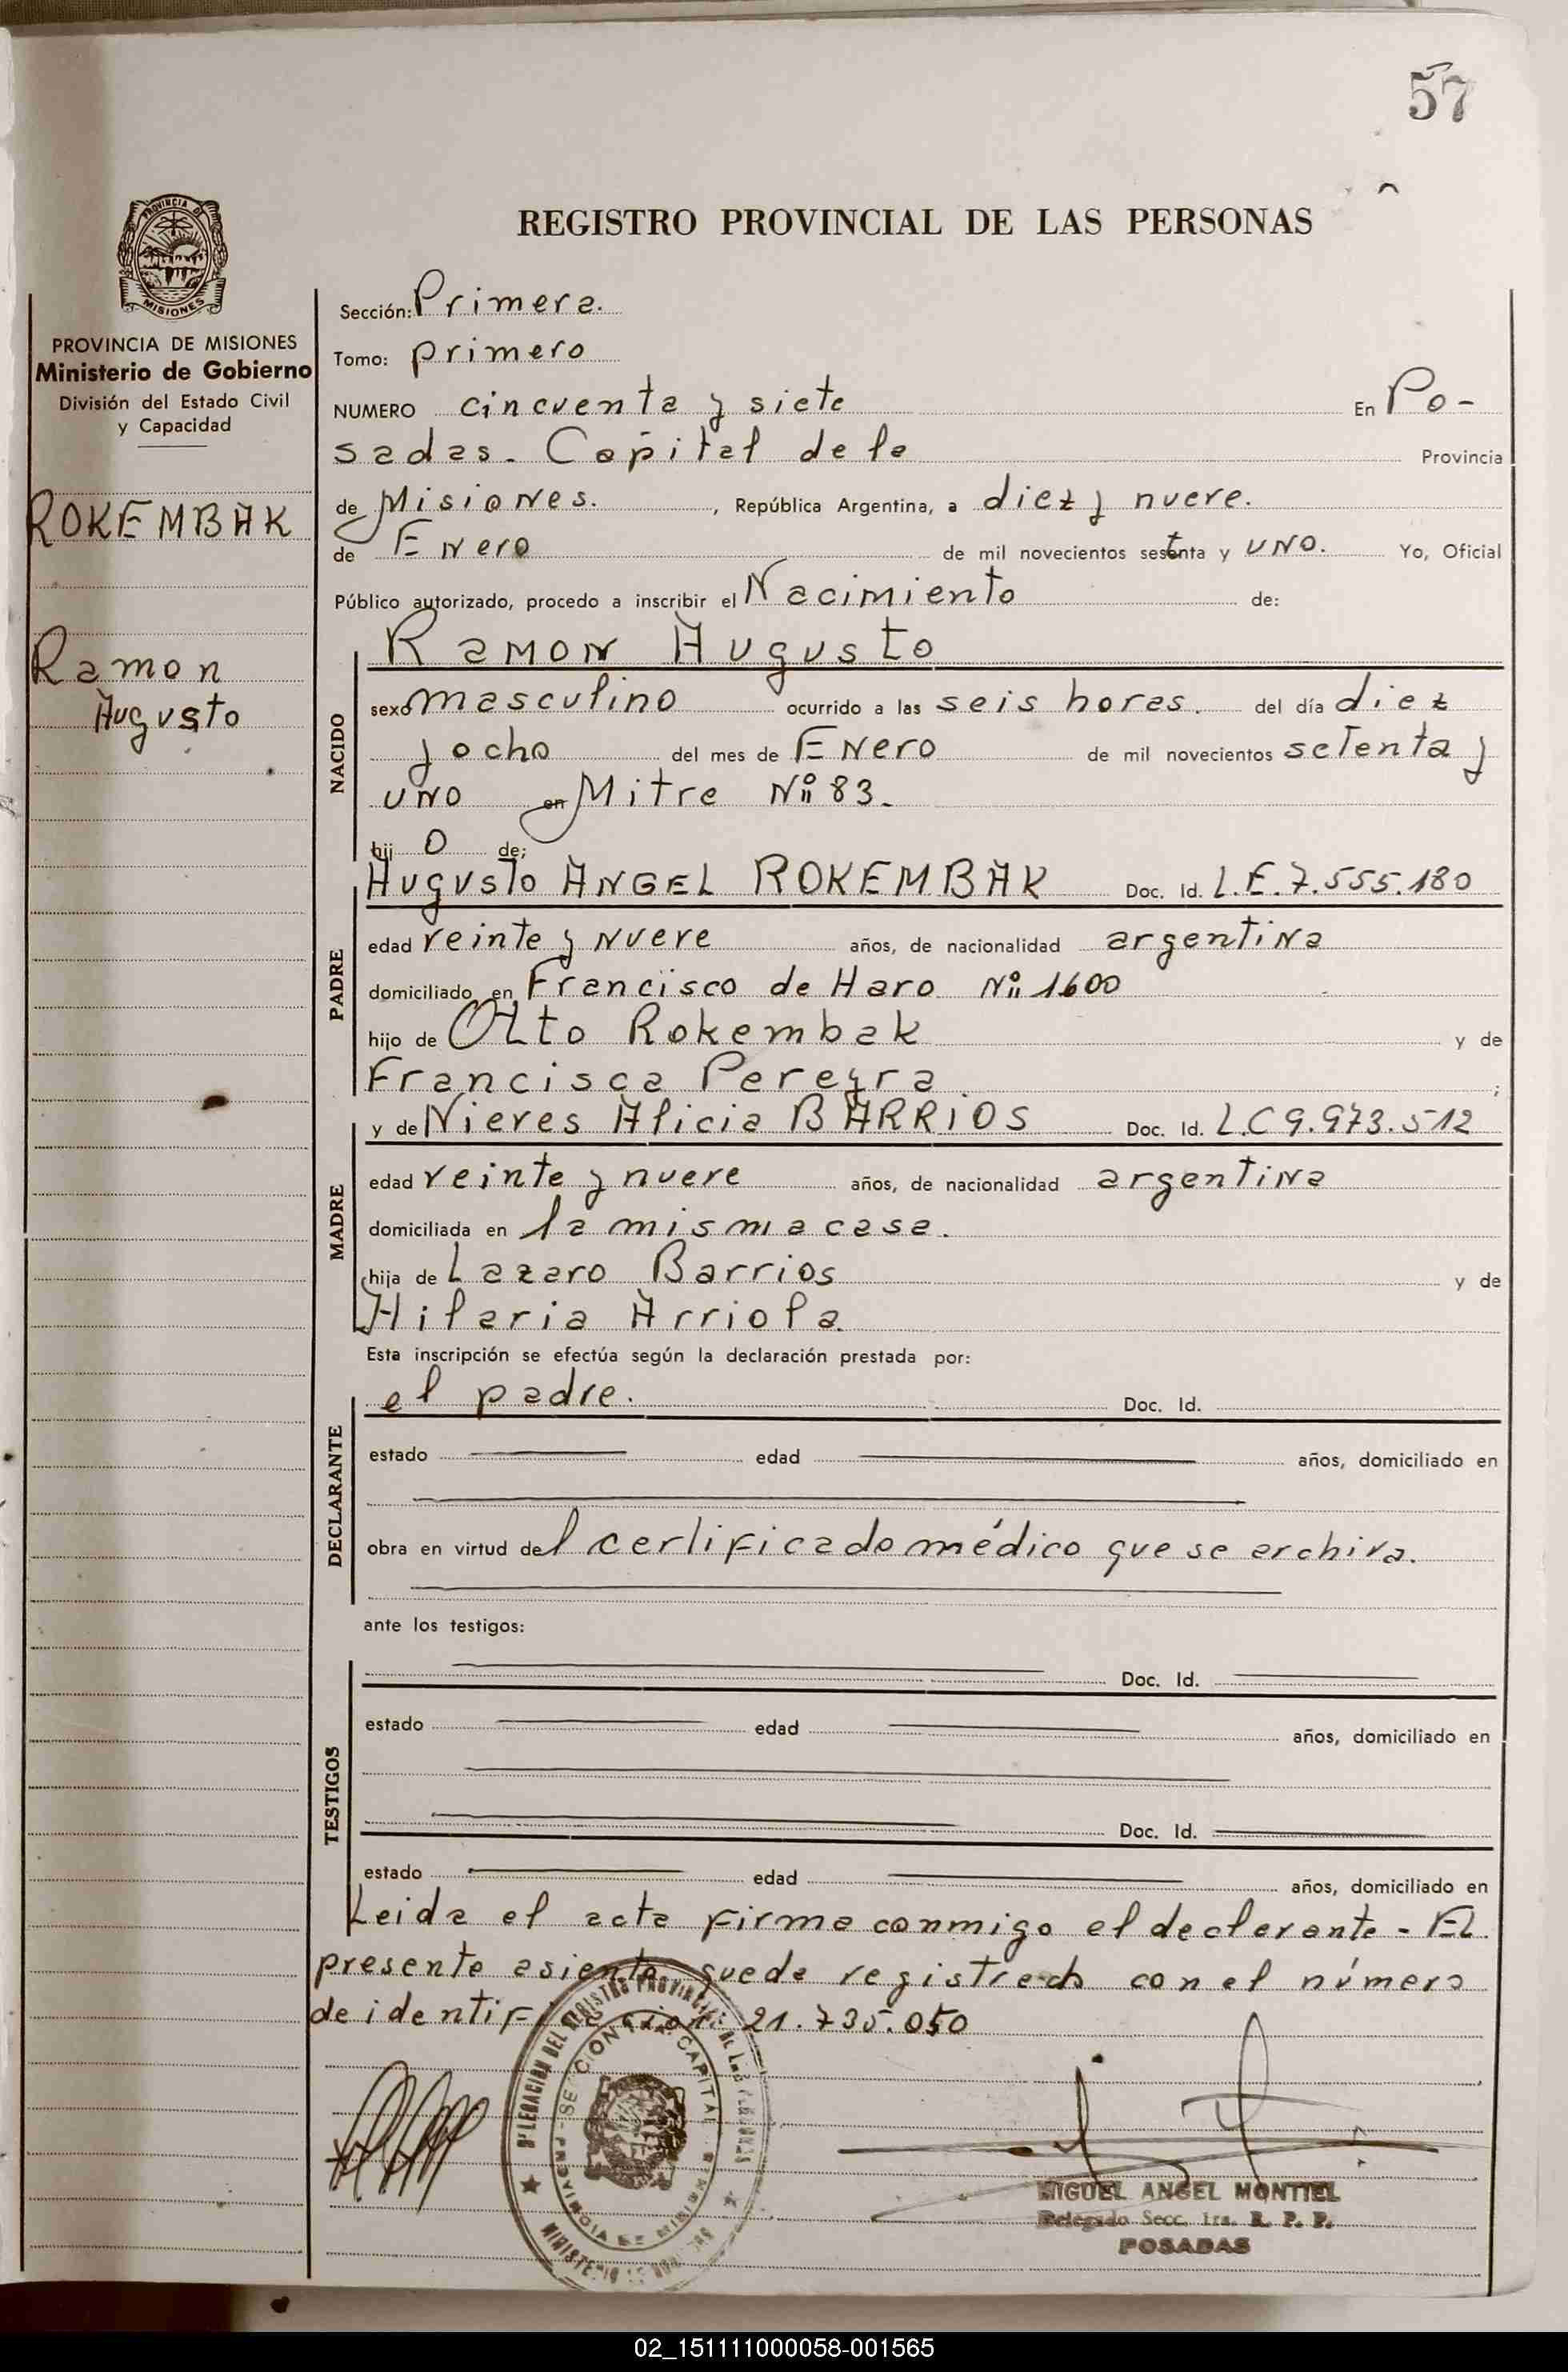 57
REGISTRO PROVINCIAL DE LAS PERSONAS
PROVINCIA DE
MISIONES
PROVINCIA DE MISIONES
Ministerio de Gobierno
División del Estado Civil
y Capacidad
ROKEMBAK
Ramon
Augusto
Sección: Primera.
Tomo: primero
NUMERO cincuenta y siete En Po-
sadas. Capital de la Provincia
de Misiones. , República Argentina, a diez y nueve.
de Enero de mil novecientos setenta y uno. Yo, Oficial
Público autorizado, procedo a inscribir el Nacimiento de:
NACIDO
Ramon Augusto
sexo masculino ocurrido a las seis horas. del día diez
y ocho del mes de Enero de mil novecientos setenta y
uno en Mitre Nº 83.
hij o de:
PADRE
Augusto ANGEL ROKEMBAK Doc. Id. L.E. 7.555.180
edad veinte y nueve años, de nacionalidad argentina
domiciliado en Francisco de Haro Nº 1600
hijo de Otto Rokembak y de
Francisca Pereyra ;
MADRE
y de Nieves Alicia BARRIOS Doc. Id. L.C 9.973.512
edad veinte y nueve años, de nacionalidad argentina
domiciliada en la misma casa.
hija de Lazaro Barrios y de
Hilaria Arriola.
Esta inscripción se efectúa según la declaración prestada por:
DECLARANTE
el padre. Doc. Id.
estado edad años, domiciliado en
obra en virtud del certificado médico que se archiva.
ante los testigos:
TESTIGOS
Doc. Id.
estado edad años, domiciliado en
Doc. Id.
estado edad años, domiciliado en
Leida el acta firma conmigo el declarante - El
presente asiento queda registrado con el número
de identificacion: 21.735.050
DELEGACIÓN DEL REGISTRO PROVINCIAL DE LAS PERSONAS
SECCION 1ra. CAPITAL
PROVINCIA DE MISIONES
MINISTERIO DE GOBIERNO
MIGUEL ANGEL MONTIEL
Delegado Secc. 1ra. R. P. P.
POSADAS
02_151111000058-001565